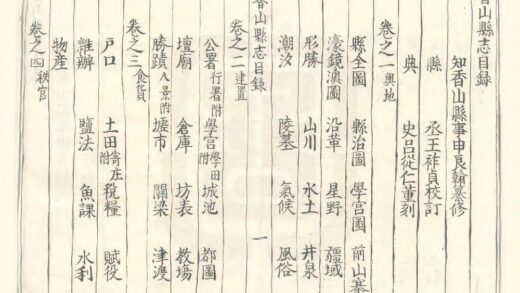 香山縣志目錄
知香山縣事申良翰纂修
縣 丞王祚貞校訂
典 史呂從仁董刻
卷之一輿地
縣全圖 縣治圖 學宮圖 前山寨
濠鏡澳圖 沿革 星野 疆域
形勝 山川 水土 井泉
潮汐 陵墓 氣候 風俗
香山縣志目錄 一
卷之二建置
公署行署附 學宮學田附 城池 都圖
壇廟 倉庫 坊表 教場
勝蹟八景附 墟市 關梁 津渡
卷之三食貨
戶口 土田寄庄附 稅糧 賦役
雜辦 鹽法 魚課 水利
物産
卷之四秩官